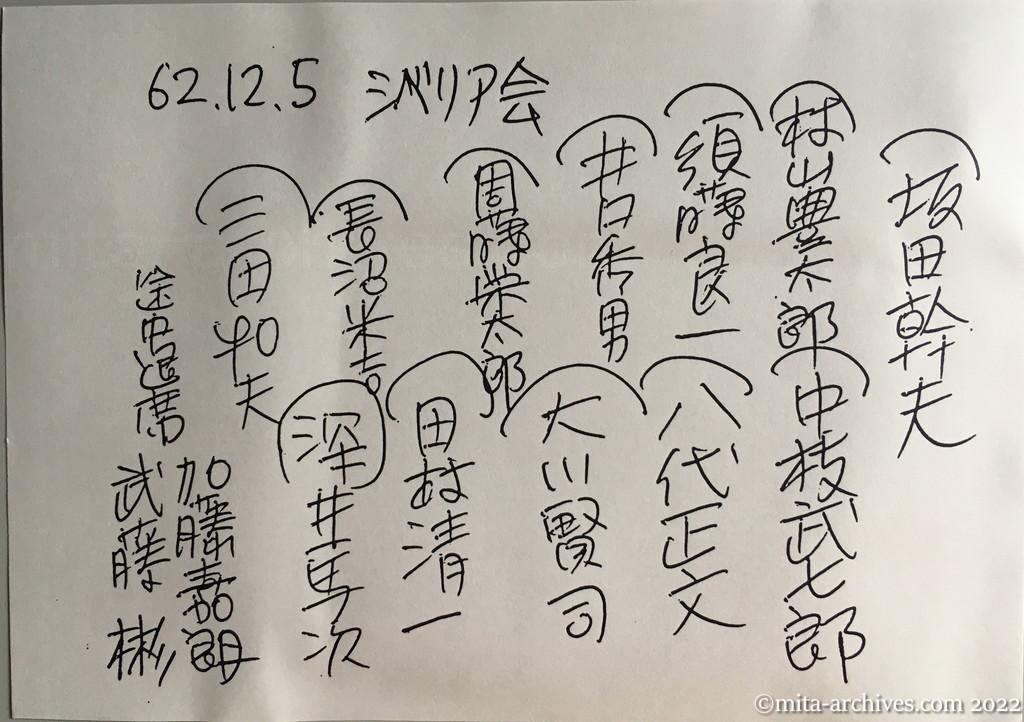 62.12.5 シベリア会
坂田幹夫
村山豊太郎
中枝武七郎
須藤良一
八代正文
井口秀男
大川賢司
周藤栄太郎
田村清一
長沼米吉
深井馬次
三田和夫
途中退席
加藤嘉朗
武藤 彬
©mita-archives.com 2022